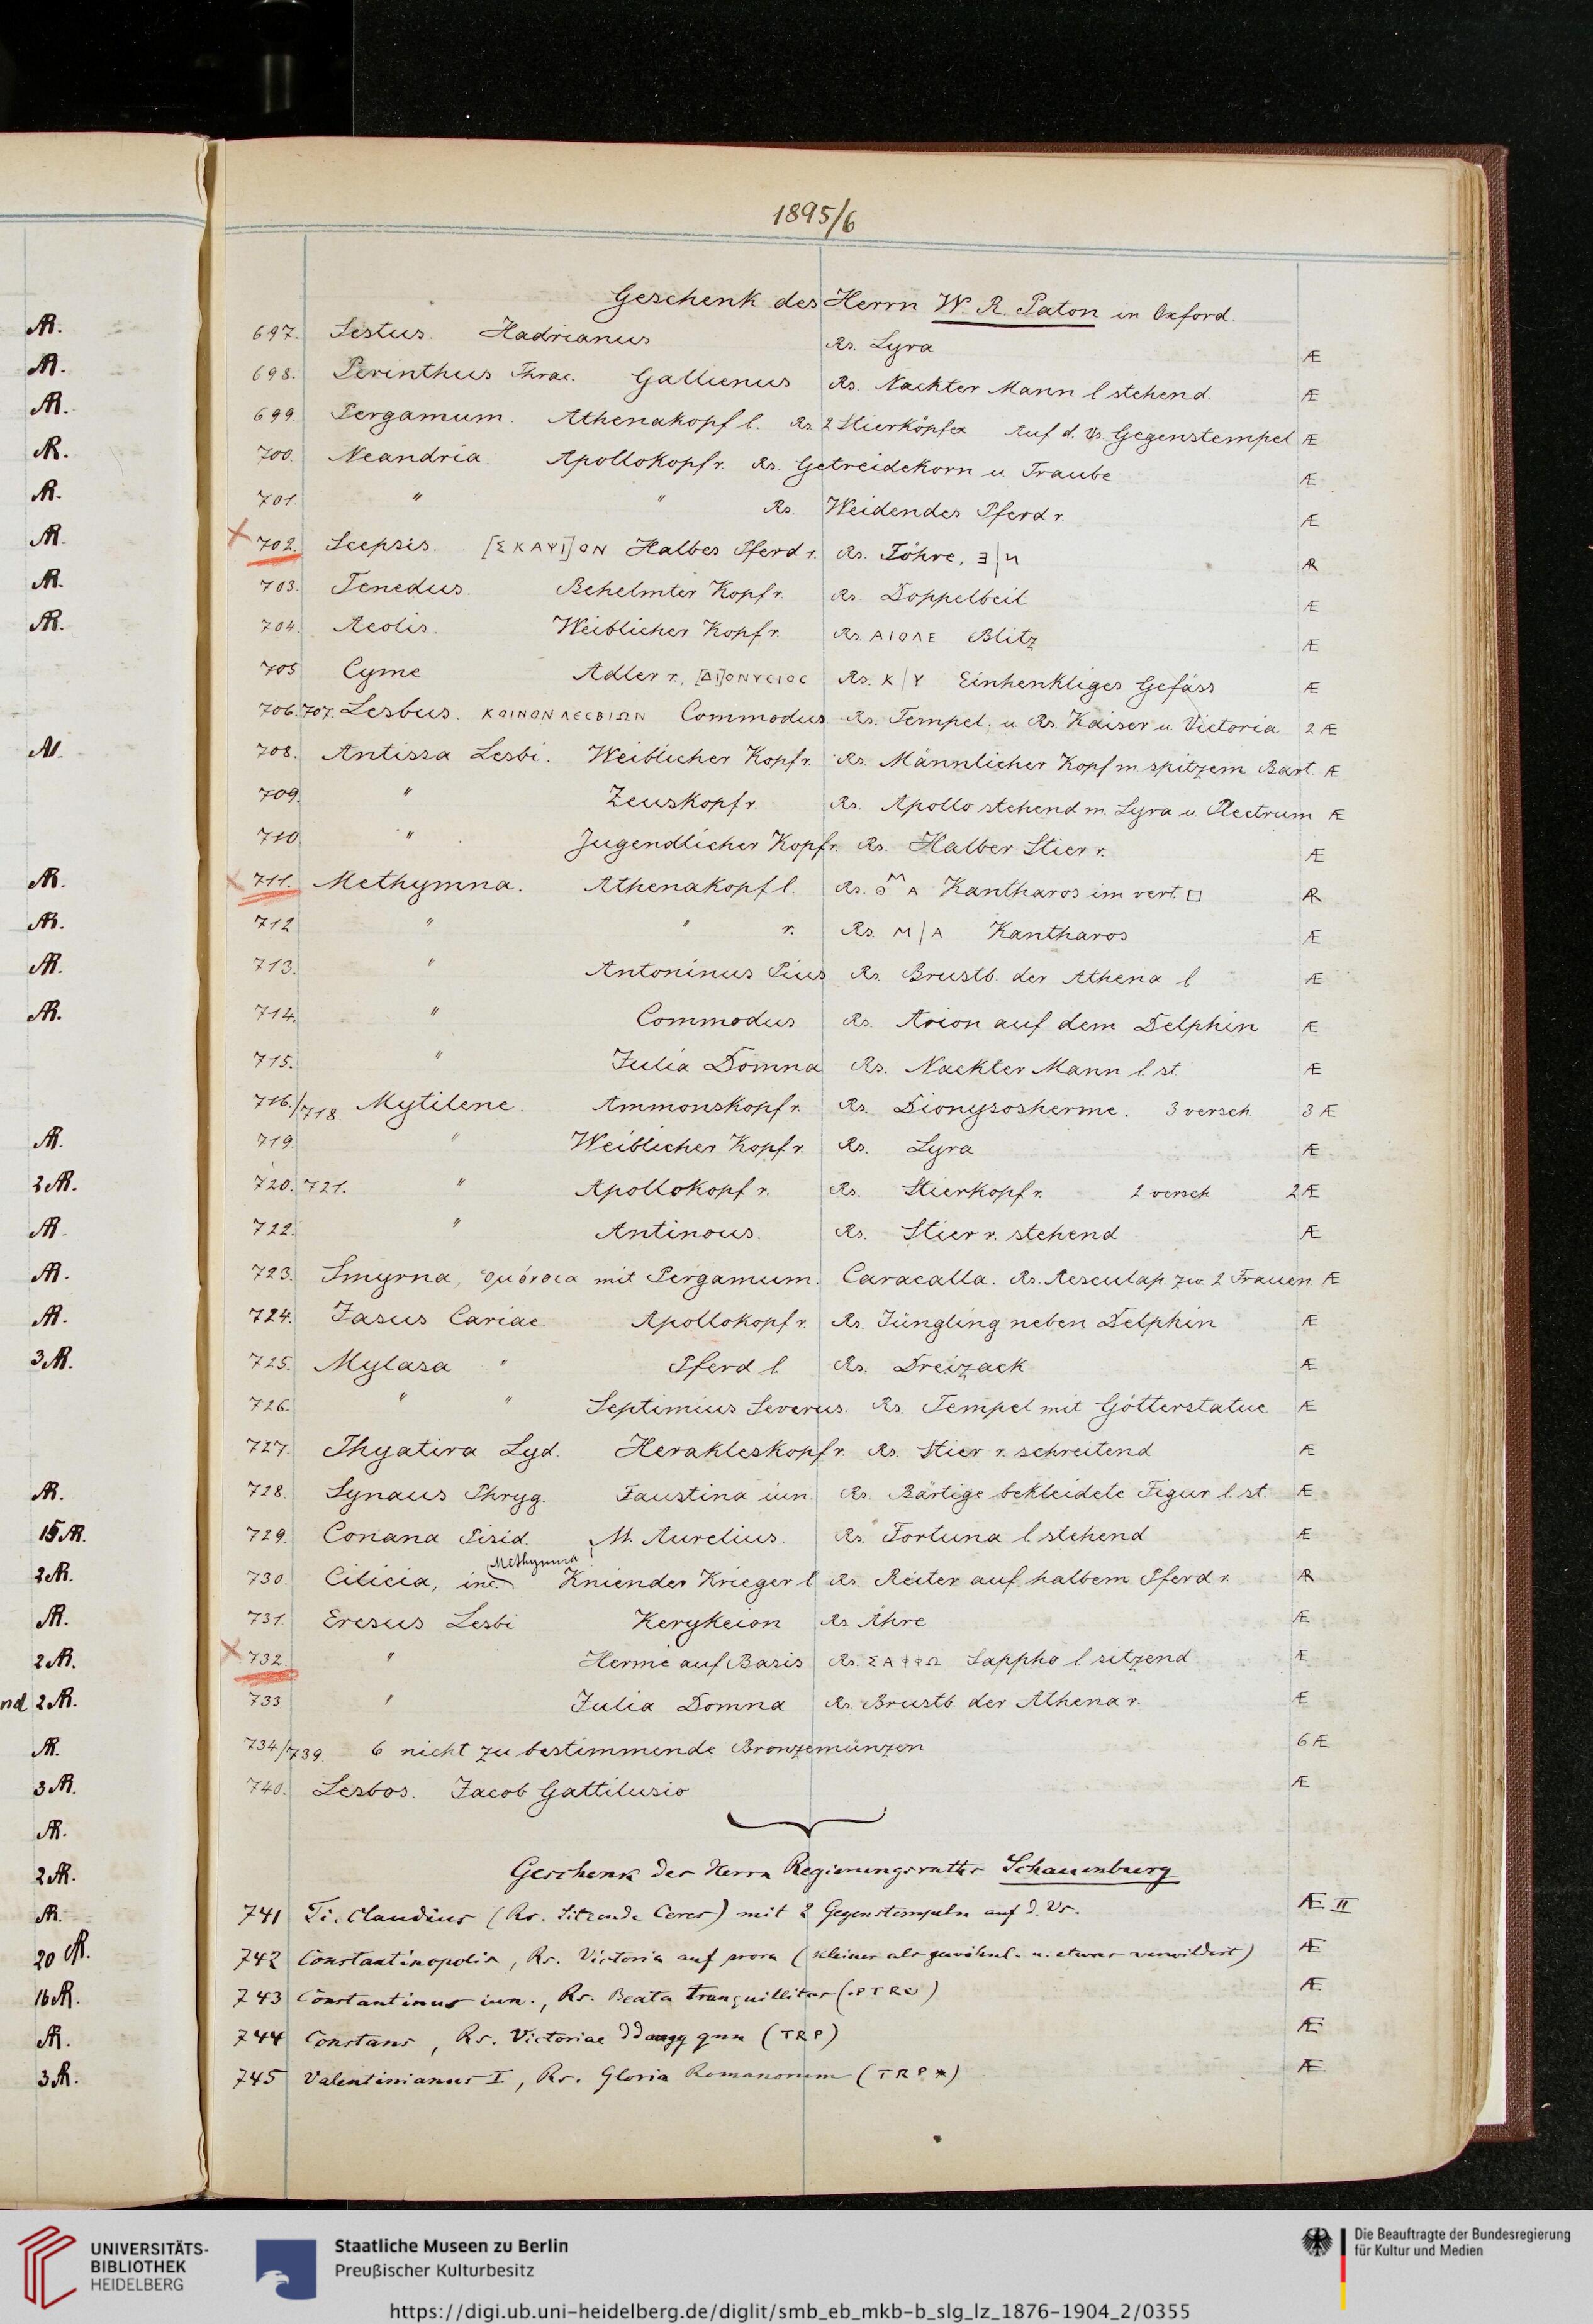 1895/6
Geschenk des Herrn W. R. Paton in Oxford.
697. Sestus. Hadrianus Rs. Lyra Æ
698. Perinthus Thrac. Gallienus Rs. Nackter Mann l stehend. Æ
699. Pergamum. Athenakopf l. Rs. 2 Stierköpfe Auf d. Vs. Gegenstempel Æ
700. Neandria. Apollokopf r. Rs. Getreidekorn u. Traube Æ
701. " " Rs. Weidendes Pferd r. Æ
702. Scepsis. [ΣΚΑΨΙ]ΟΝ Halbes Pferd r. Rs. Föhre, Ǝ|И AR
703. Tenedus. Behelmter Kopf r. Rs. Doppelbeil Æ
704. Aeolis. Weiblicher Kopf r. Rs. ΑΙΟΛΕ Blitz Æ
705 Cyme Adler r., [ΔΙ]ΟΝΥCΙΟC Rs. Κ|Υ Einhenkliges Gefäss Æ
706. 707. Lesbus. ΚΟΙΝΟΝ ΛΕCΒΙΩΝ Commodus Rs. Tempel. u. Rs. Kaiser u Victoria 2 Æ
708. Antissa Lesbi. Weiblicher Kopf r. Rs. Männlicher Kopf m spitzem Bart. Æ
709. " Zeuskopf r. Rs. Apollo stehend m. Lyra u. Plectrum Æ
710. " Jugendlicher Kopf r. Rs. Halber Stier r. Æ
711. Methymna. Athenakopf l. Rs. Μ Α Kantharos im vert. □ AR
712 " " r. Rs. Μ|Α Kantharos Æ
713. " Antoninus Pius Rs. Brustb. der Athena l Æ
714. " Commodus Rs. Arion auf dem Delphin Æ
715. " Julia Domna Rs. Nackter Mann l. st. Æ
716./718. Mytilene. Ammonskopf r. Rs. Dionysosherme. 3 versch. 3 Æ
719. " Weiblicher Kopf r. Rs. Lyra Æ
720. 721. " Apollokopf r. Rs. Stierkopf r. 2 versch 2 Æ
722. " Antinous. Rs. Stier r. stehend Æ
723. Smyrna, ὁμόνοια mit Pergamum. Caracalla. Rs. Aesculap. zw. 2 Frauen Æ
724. Jasus Cariae. Apollokopf r. Rs. Jüngling neben Delphin Æ
725. Mylasa " Pferd l. Rs. Dreizack Æ
726. " " Septimius Severus. Rs. Tempel mit Götterstatue Æ
727. Thyatira Lyd. Herakleskopf r. Rs. Stier r. schreitend Æ
728. Synaus Phryg. Faustina iun. Rs. Bärtige bekleidete Figur l st. Æ
729. Conana Pisid. M. Aurelius. Rs. Fortuna l stehend Æ
Methymna !
730. Cilicia, inc. Kniender Krieger l Rs. Reiter auf halbem Pferd r. AR
731. Eresus Lesbi Kerykeion Rs. Ähre Æ
732. " Herme auf Basis Rs. ΣΑΦΦΩ Sappho l sitzend Æ
733. " Julia Domna Rs. Brustb. der Athena r. Æ
734/739. 6 nicht zu bestimmende Bronzemünzen 6 Æ
740. Lesbos. Jacob Gattilusio Æ
Geschenk des Herrn Regierungsraths Schauenburg
741 Ti. Claudius (Rs. Sitzende Ceres) mit 2 Gegenstempeln auf d. Vs. Æ II
742 Constantinopolis, Rs. Victoria auf prora (kleiner als gewöhnl. u. etwas verwildert) Æ
743 Constantinus iun., Rs. Beata tranquillitas (.PTR) Æ
744 Constans, Rs. Victoriae dd augg qnn (TRP) Æ
745 Valentinianus I, Rs. Gloria Romanorum (TRP*) Æ
AR.
AR.
AR.
AR.
AR.
AR.
AR.
AR.
AR.
AR.
AR.
AR.
AR.
AR.
2 AR.
AR.
AR.
AR.
3 AR.
AR.
15 AR.
2 AR.
AR.
2 AR.
nd 2 AR.
AR.
3 AR.
AR.
2 AR.
AR.
20 AR.
16 AR.
AR.
3 AR.
UNIVERSITÄTS-
BIBLIOTHEK
HEIDELBERG
Staatliche Museen zu Berlin
Preußischer Kulturbesitz
Die Beauftragte der Bundesregierung
für Kultur und Medien
https://digi.ub.uni-heidelberg.de/diglit/smb_eb_mkb-b_slg_lz_1876-1904_2/0355